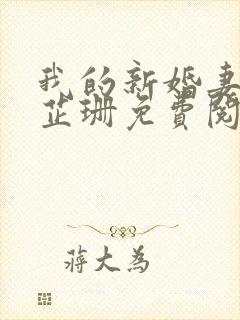 我的新婚妻
芷珊免费阅
蒋大为